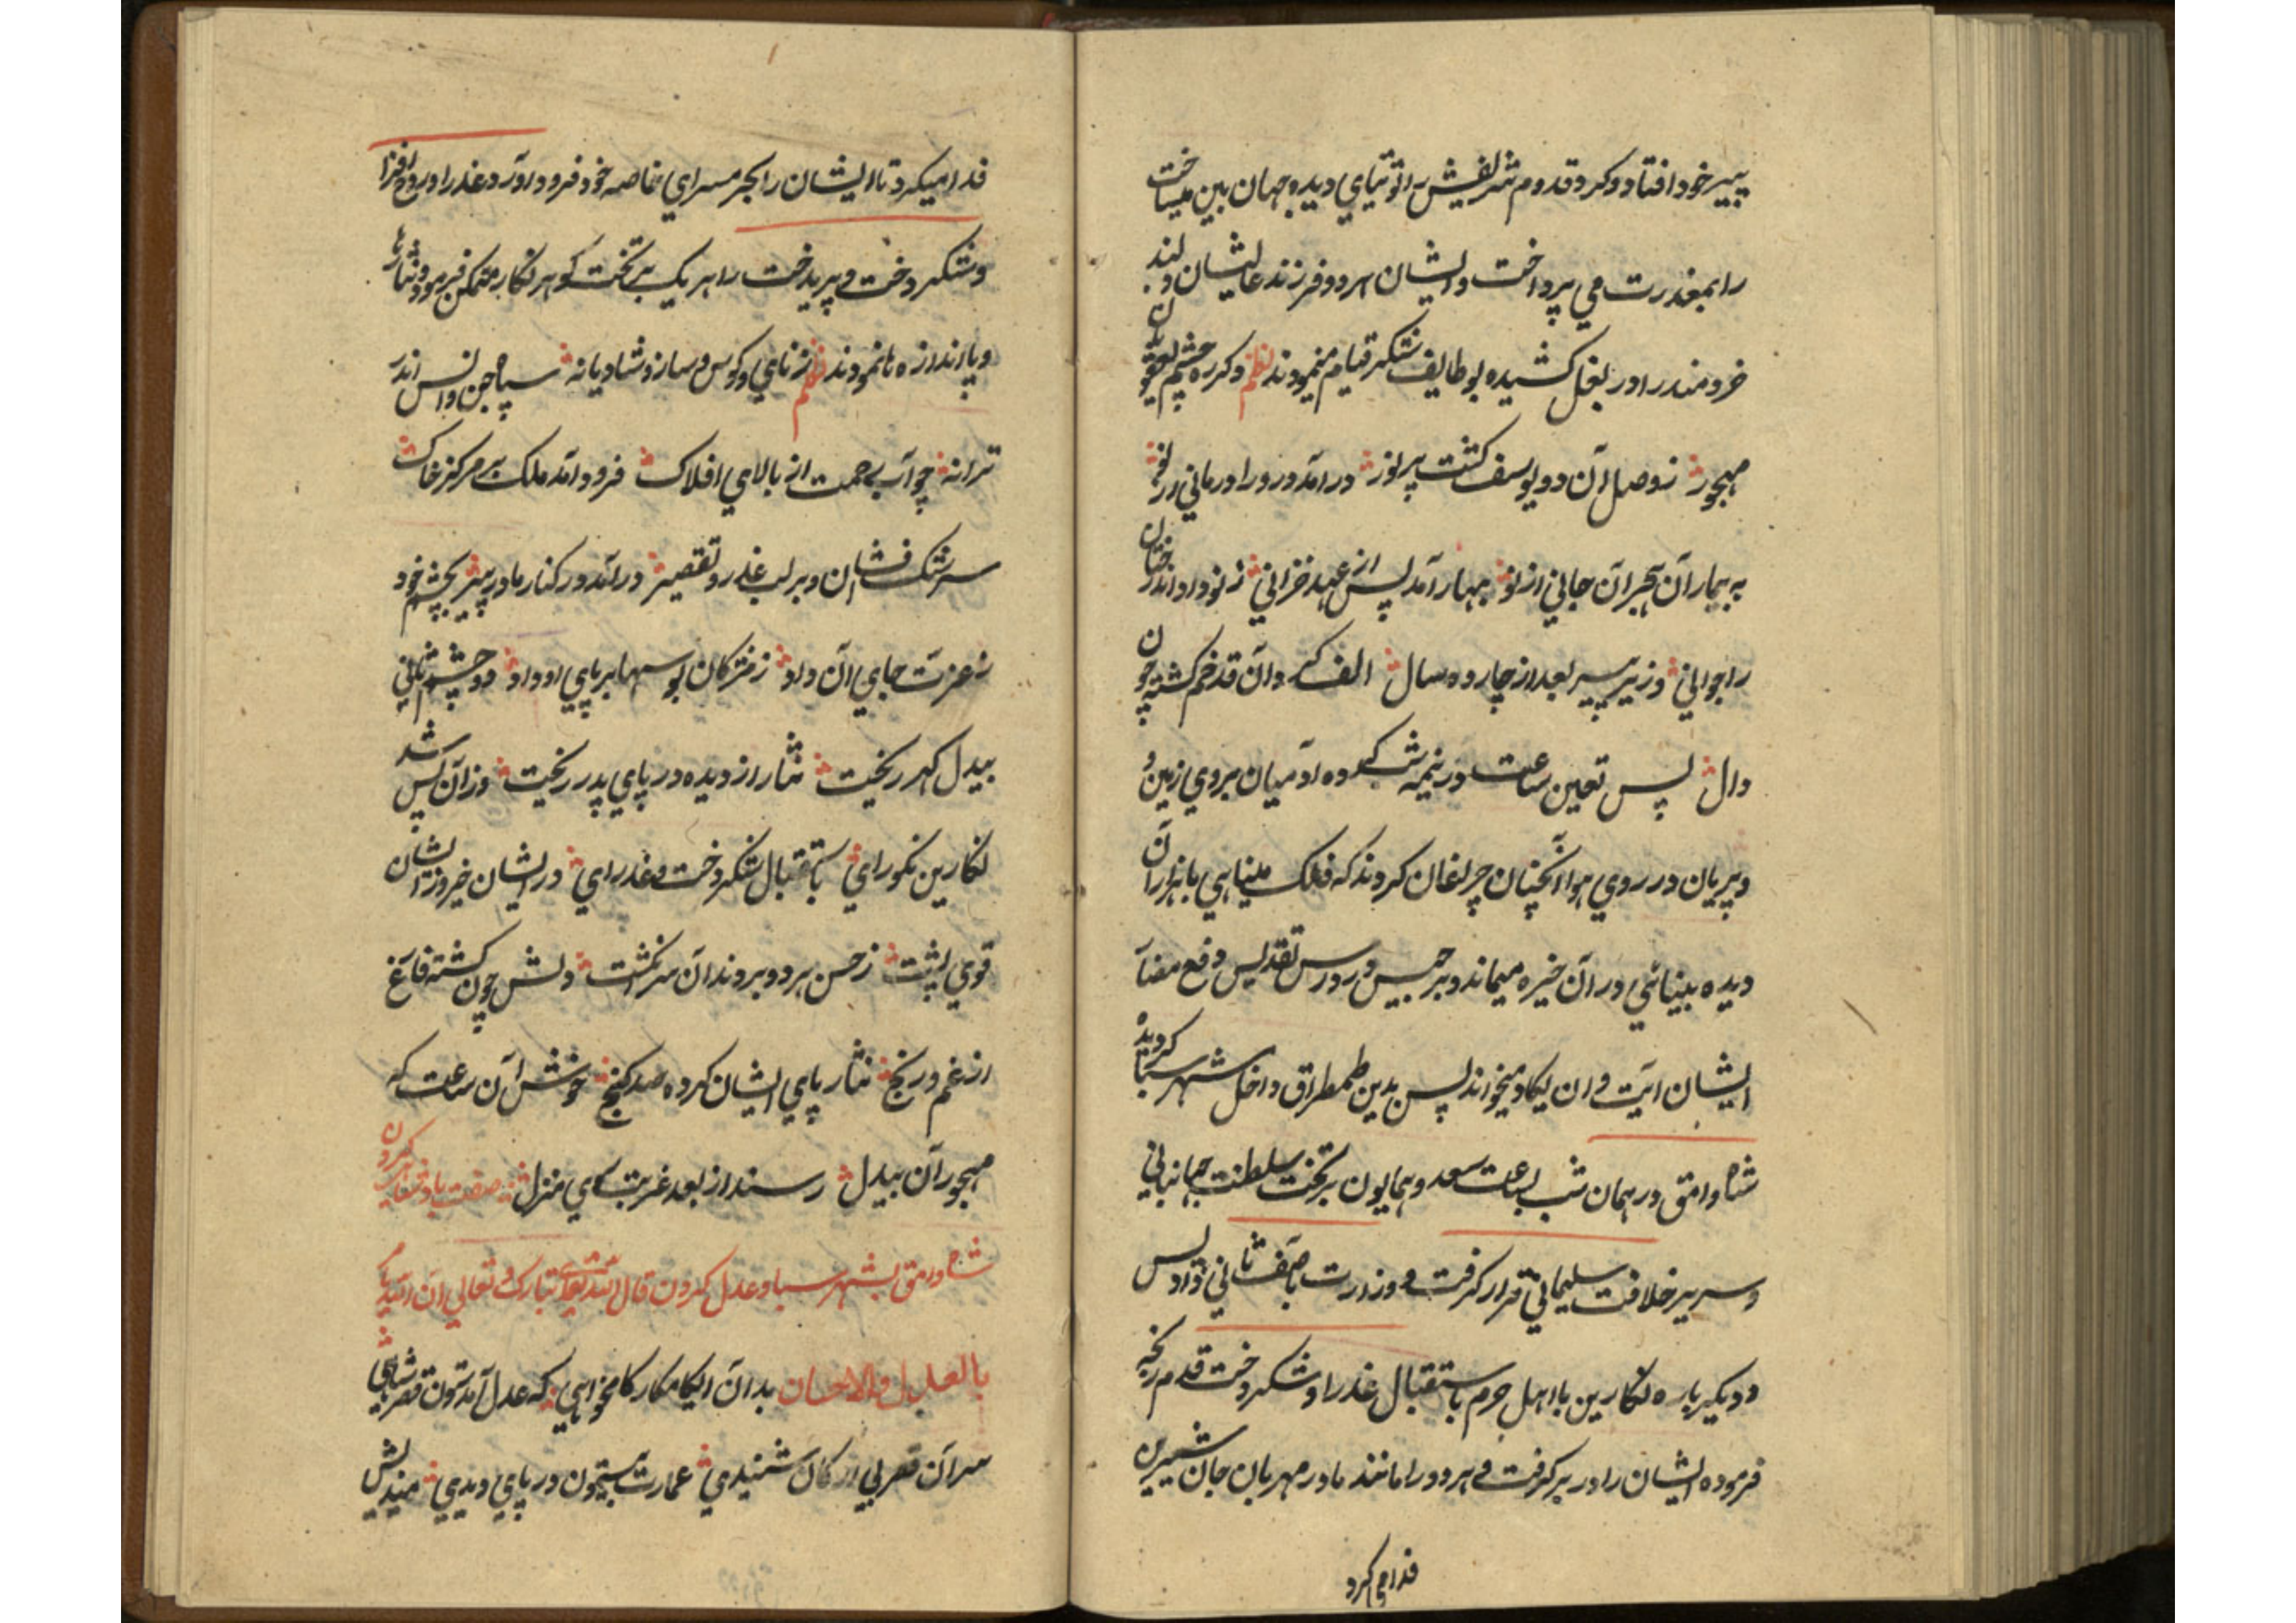 پیر خود افتاد و کرد قدوم شریفش را توتیای دیده جهان بین میساخت
را بمعذرت می پرداخت و ایشان هر دو فرزند عالیشان و بند
خردمند را در بغل کشیده بوظایف شکر قیام مینمودند نظم دکر ره چشم یعقوبان
مهجور ز وصل آن دو یوسف کشت پر نور در آمد درد را درمانی از نو
به بیمار آن هجر آن جانی از نو بهار آمد پس از عهد خزانی ز نو داد اندر
را جوانی وزیر پیر بعد از چارده سال الف کرد آن قد خم کشته چون
دال پس تعین ساعت در نیمه شب کرده آدمیان بروی زمین
و پریان در روی هوا آنچنان چراغان کردند که فلک مینایی با هزاران
دیده بینائی در آن خیره میماند و برجیس در درس تقدیس دفع
ایشان آیت و ان یکاد میخواند پس بدین طمطراق داخل شهر سبا کردیده
شاه وامق در همان شب بساعت سعد و همایون بر تخت سلطنت جهانبانی
و سریر خلافت سلیمانی قرار کرفت و وزارت باصف ثانی داد پس
و دیکر باره نکارین با اهل حرم باستقبال عذرا و شکردخت قدم رنجه
فرموده ایشان را در بر کرفت و هر دو را مانند مادر مهربان جان شیرین
فدا می کرد
فدا میکرد تا ایشان را بحرمسرای خاصه خود فرود آورد و عذرا و روح افزا
و شکردخت و پریدخت را هر یک بر تخت کوهر نکار متمکن فرمود و نثارها
و پا اندازها نمودند نظم ز نای و کوس و ساز و شادیانه سپاه جن و انس اندر
ترانه چو آب رحمت از بالای افلاک فرود آمد ملک بر مرکز خاک
سرشک افشان و بر لب عذر تقصیر در آمد در کنار مادر پیر بچشم خود
ز عزت جای آن داد ز مژکان بوسها بر پای او داد دو چشم
بیدل کهر ریخت نثار از دیده در پای پدر ریخت وز آن پس شد
نکارین نکو رای باستقبال شکردخت و عذرای در ایشان خیره ز ایشان
قوی پشت ز حسن هر دو بر دندان سر انکشت دلش چون کشته فارغ
از غم و رنج نثار پای ایشان کرده صد کنج خوش آن ساعت که
مهجور آن بیدل رسند از بعد غربت سوی منزل صفت پادشاهی کردن
شاه وامق بشهر سبا و عدل کردن قال الله تبارک و تعالی ان الله یامر
بالعدل والاحسان بدان ای کامکار کام خواهی که عدل آمد ستون قصر شاهی
سر آن قصر بی ارکان شنیدی عمارت بیستون در پای دیدی